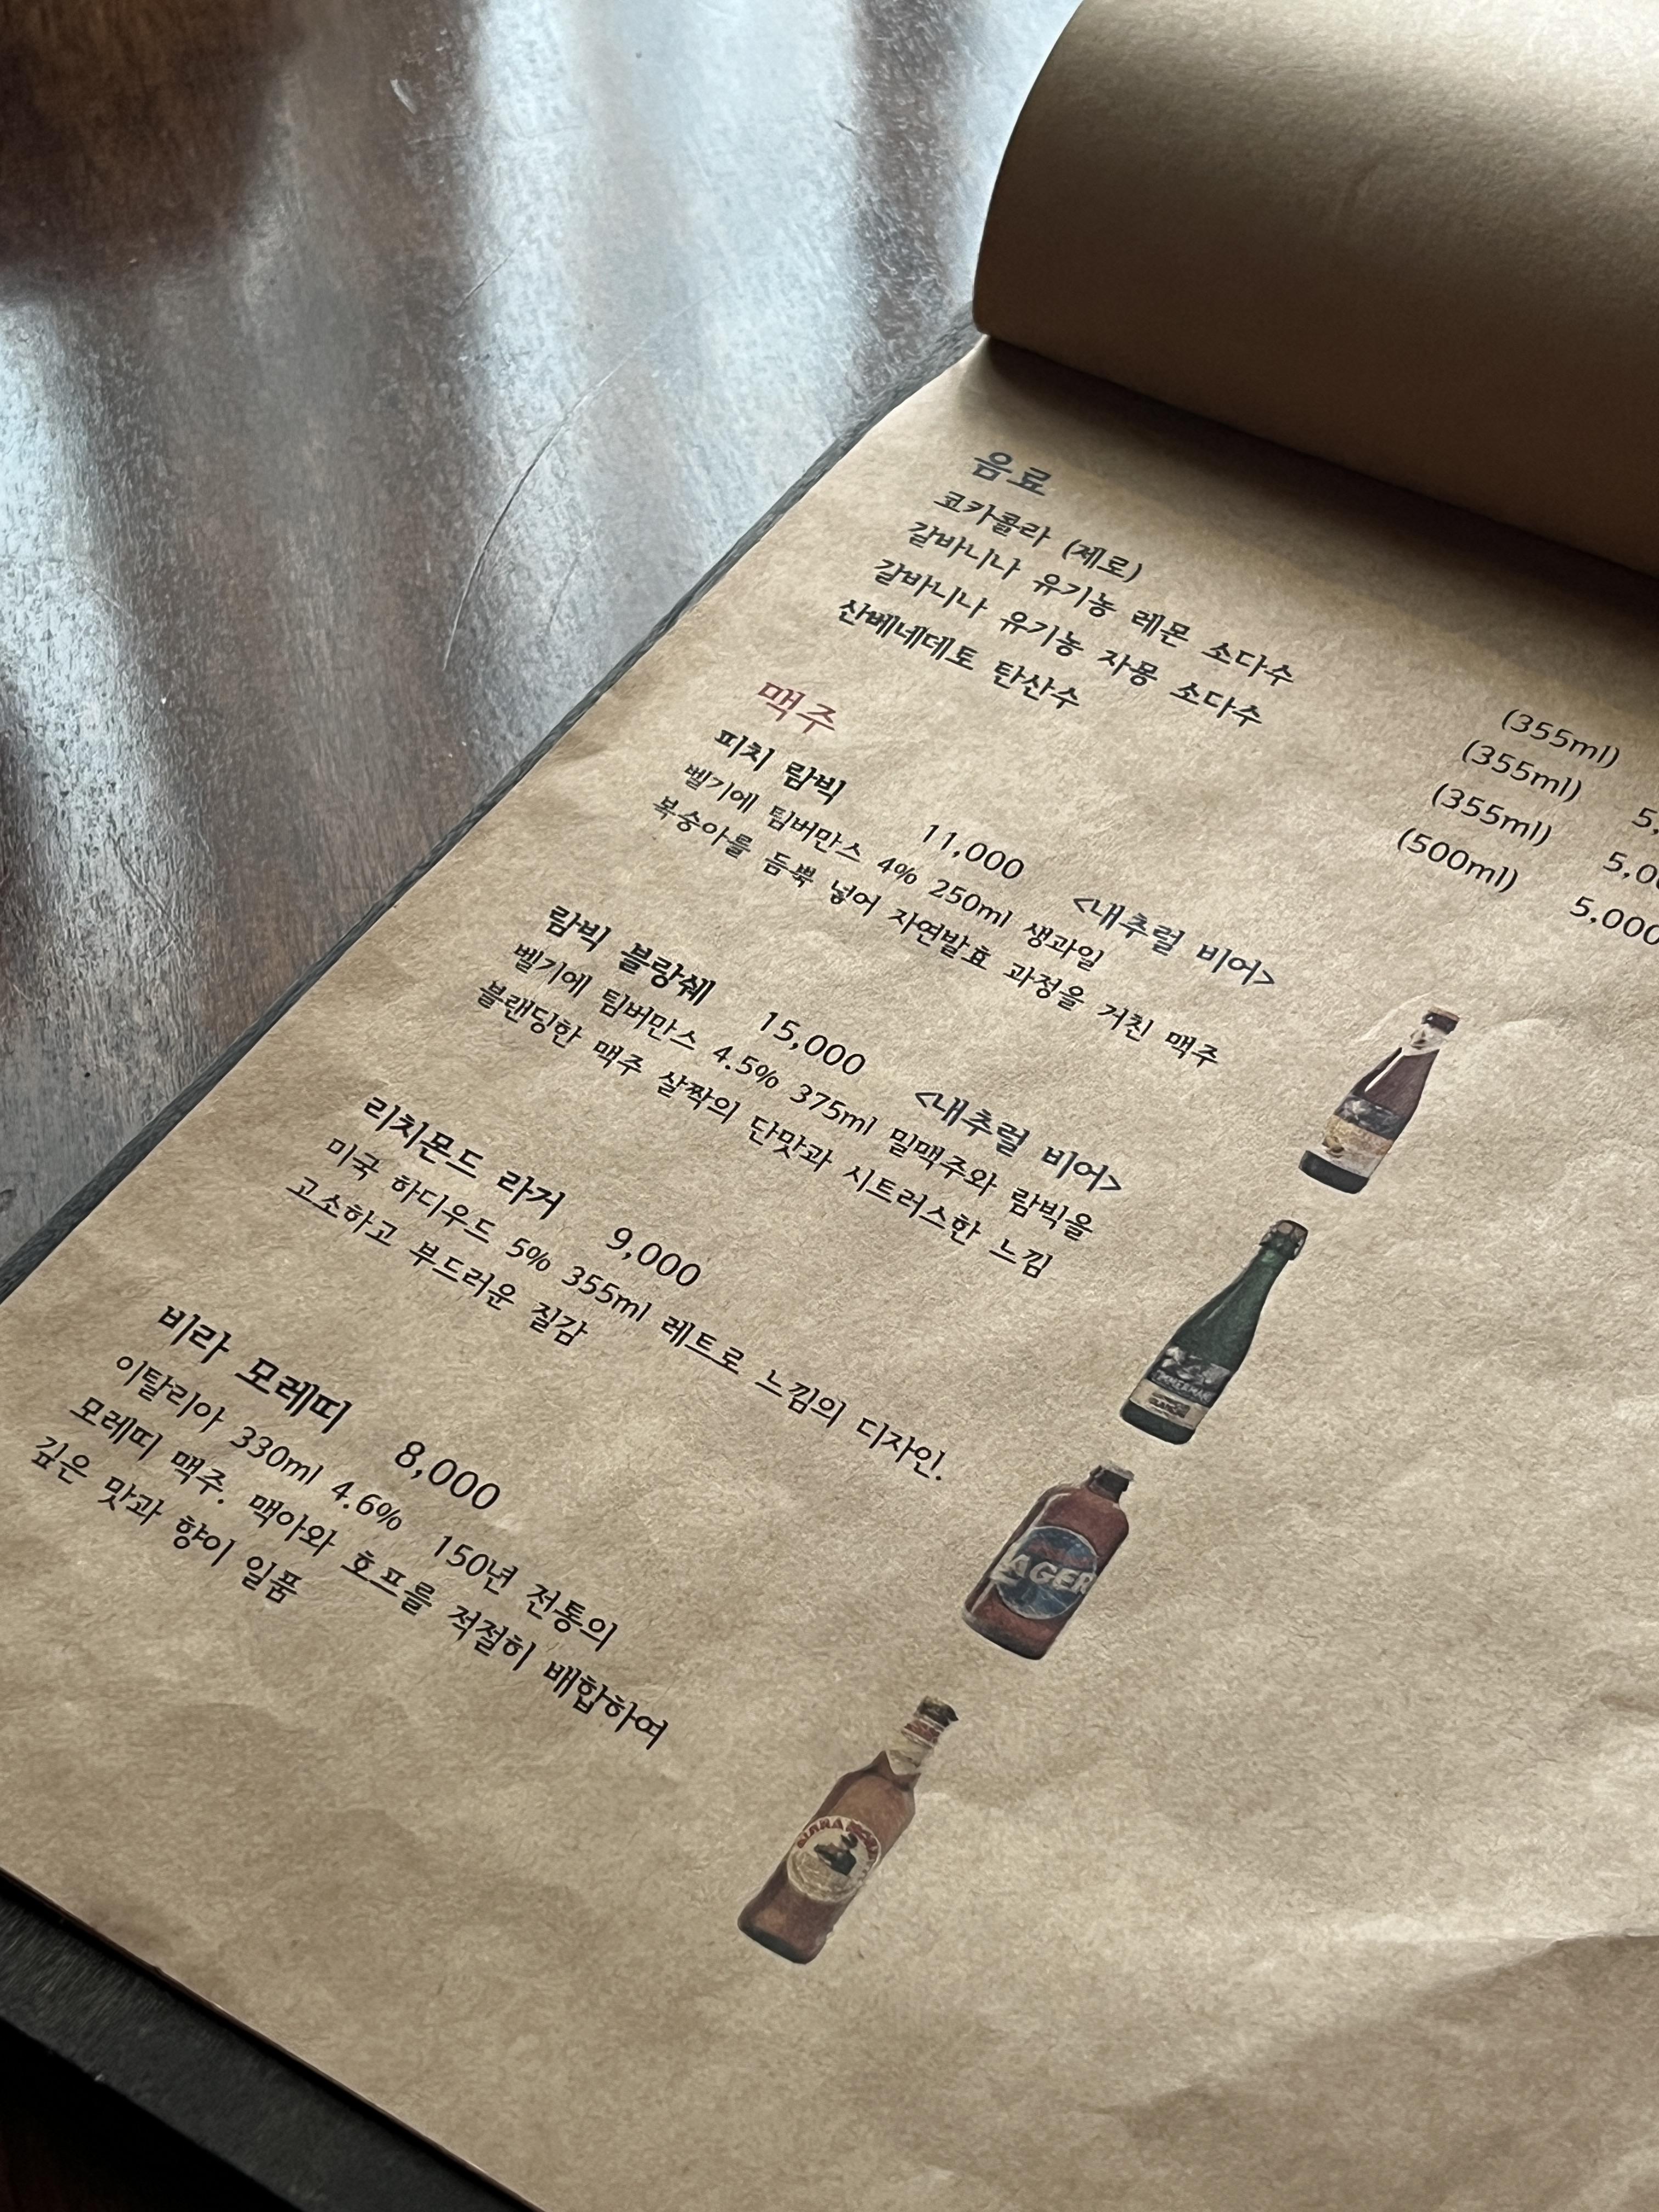 음료
코카콜라 (제로) (355ml)
갈바니나 유기농 레몬 소다수 (355ml)
갈바니나 유기농 자몽 소다수 (355ml)
산베네데토 탄산수 (500ml) 5,000
맥주
피치 람빅 11,000 <내추럴 비어>
벨기에 팀버만스 4% 250ml 생과일
복숭아를 듬뿍 넣어 자연발효 과정을 거친 맥주
람빅 블랑쉐 15,000 <내추럴 비어>
벨기에 팀버만스 4.5% 375ml 밀맥주와 람빅을
블랜딩한 맥주 살짝의 단맛과 시트러스한 느낌
리치몬드 라거 9,000
미국 하디우드 5% 355ml 레트로 느낌의 디자인.
고소하고 부드러운 질감
LAGER
비라 모레띠 8,000
이탈리아 330ml 4.6% 150년 전통의
모레띠 맥주. 맥아와 호프를 적절히 배합하여
깊은 맛과 향이 일품